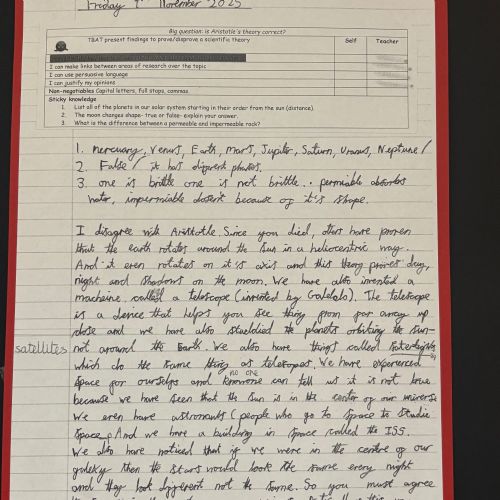 Friday November 2025
Big question: is Aristotle's theory correct?
TBAT present findings to prove/disprove a scientific theory Self Teacher
I can make links between areas of research over the topic
I can use persuasive language
I can justify my opinions
Non-negotiables Capital letters, full stops, commas
Sticky knowledge
1. List all of the planets in our solar system starting in their order from the sun (distance).
2. The moon changes shape- true or false- explain your answer.
3. What is the difference between a permeable and impermeable rock?
1. nercuary, Venus, Earth, mars, Jupiter, Saturn, Uranus, Neptune/
2. False/ it has different phases.
3. one is brittle one is not brittle.. permiable absorbs
water, impermiable dosent because of it's shape.
I disagree with Aristotle. Since you died, others have proven
that the earth rotates around the sun in a heliocentric way.
And it even rotates on it's axis and this theory proves day,
night and shadows on the moon. We have also invented a
macheine called a telescope (invented by Galelelo). The telescope
is a device that helps you see thing from far away up
close and we have also studied the planets orbiting the sun-
satellites not around the Earth. We also have things called
which do the same thing as telescopes. We have experienced
space for ourselfs and no one can tell us it is not true
because we have seen that the sun is in the center of our universe
We even have astronauts (people who go to space to studie
space. And we have a building in space called the ISS.
We also have noticed that if we were in the centre of our
galaxy then the stars would look the same every night
and they look different not the same. So you must agree